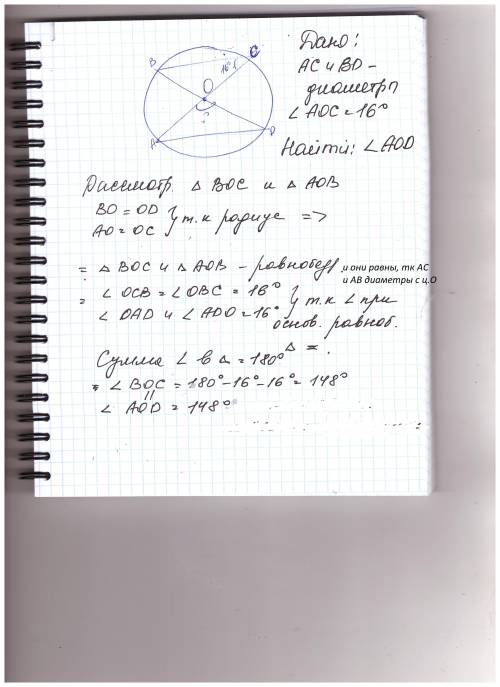 Дано:
AC и BD -
диаметры
∠ AOC = 16°
Найти: ∠AOD
B
C
16°
O
?
A
D
Рассмотр. △ BOC и △ AOB
BO = OD } т.к радиус =>
AO = OC
= △ BOC и △ AOB - равнобед ,и они равны, тк AC
и AB диаметры с ц.O
= ∠ OCB = ∠ OBC = 16° } т.к ∠ при
∠ OAD и ∠ ADO = 16° основ. равноб.
△ =.
Сумма ∠ в △ = 180°
∠ BOC = 180° - 16° - 16° = 148°
||
∠ AOD = 148°